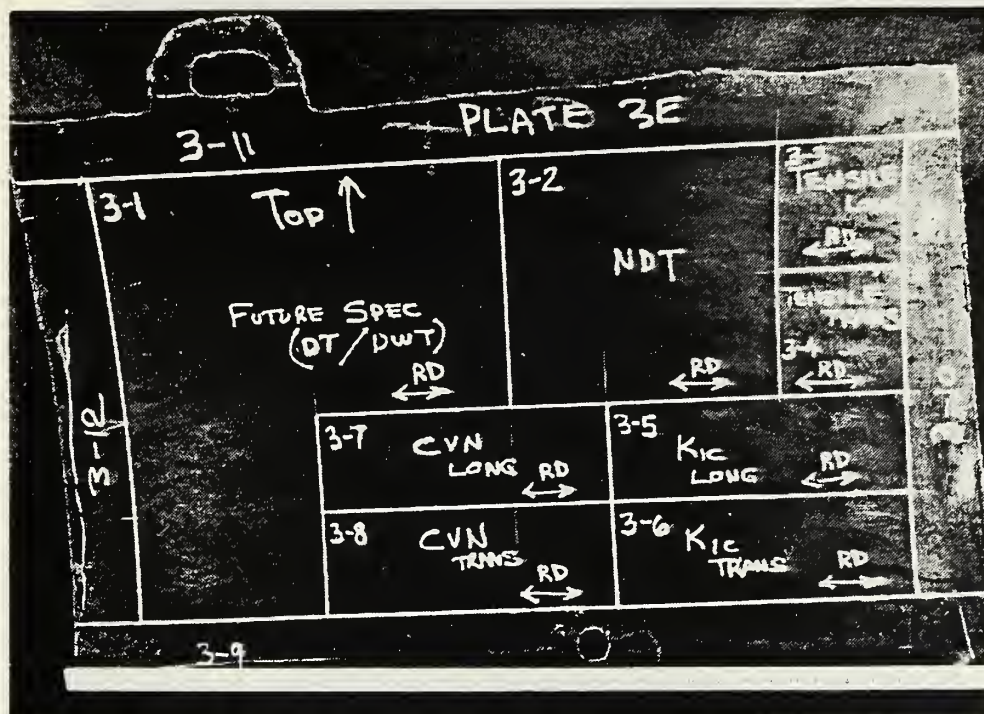 PLATE 3E
3-11
3-1
TOP ↑
FUTURE SPEC
(DT/DWT)
RD
3-2
NDT
RD
3-3
TENSILE
RD
TENSILE
TRANS
3-4
RD
3-12
3-7
CVN
LONG
RD
3-5
KIC
LONG
RD
3-8
CVN
TRANS
RD
3-6
KIC
TRANS
RD
3-9